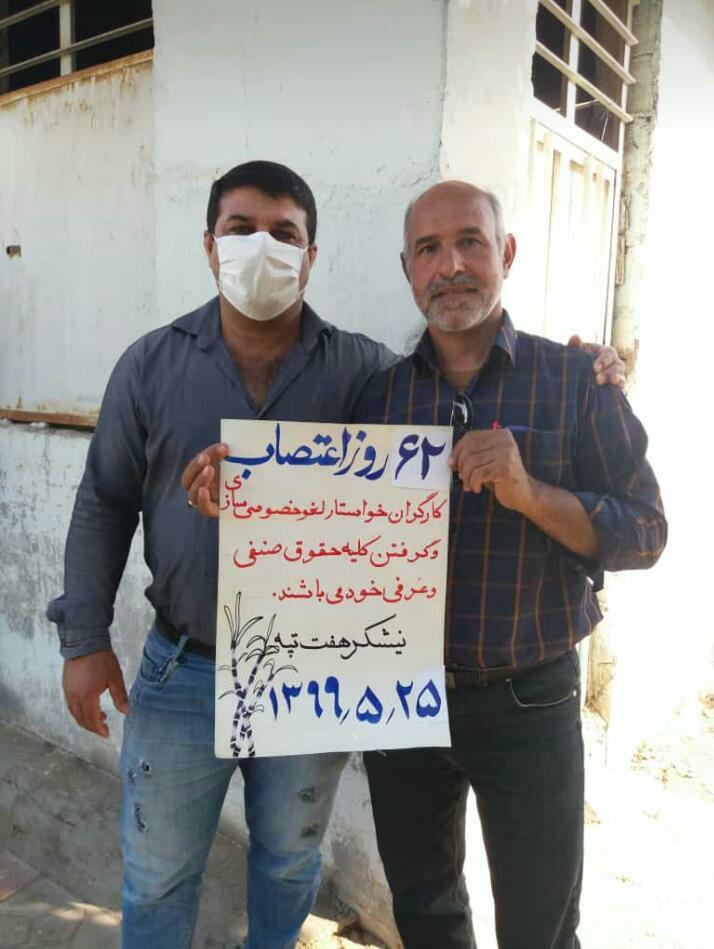 ۶۲ روز اعتصاب
کارگران خواستار لغو خصوصی سازی
و گرفتن کلیه حقوق صنفی
و عرفی خود می باشند.
نیشکر هفت تپه
۱۳۹۹٫۵٫۲۵